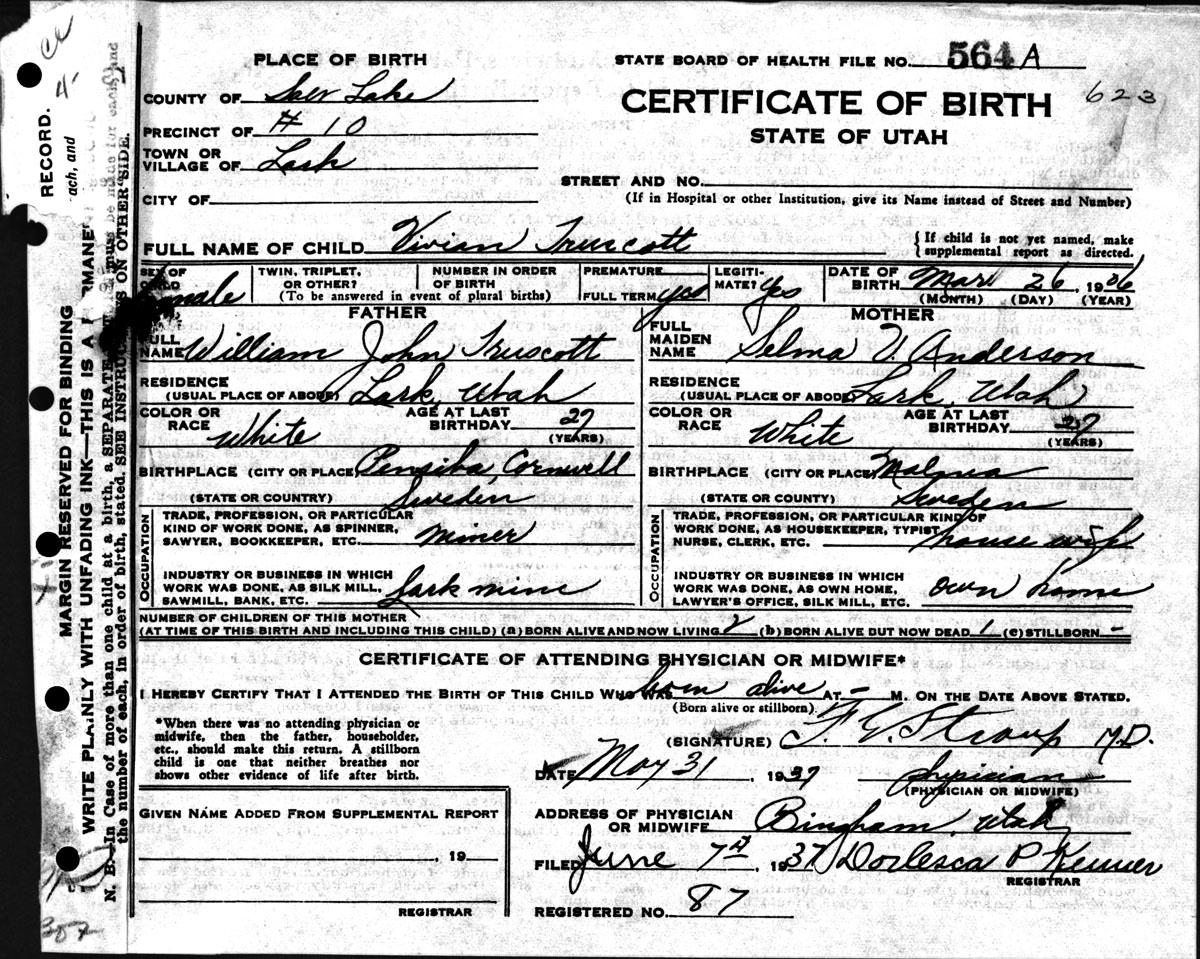 PLACE OF BIRTH
STATE BOARD OF HEALTH FILE NO. 564 A
COUNTY OF Salt Lake
CERTIFICATE OF BIRTH 623
PRECINCT OF # 10
STATE OF UTAH
TOWN OR VILLAGE OF Lark
STREET AND NO.
CITY OF
(If in Hospital or other Institution, give its Name instead of Street and Number)
FULL NAME OF CHILD Vivian Truscott
{ If child is not yet named, make supplemental report as directed.
SEX OF CHILD Female
TWIN, TRIPLET, OR OTHER?
NUMBER IN ORDER OF BIRTH
(To be answered in event of plural births)
PREMATURE
FULL TERM yes
LEGITIMATE? Yes
DATE OF BIRTH Mar 26, 1906
(MONTH) (DAY) (YEAR)
FATHER
FULL NAME William John Truscott
RESIDENCE (USUAL PLACE OF ABODE) Lark, Utah
COLOR OR RACE White
AGE AT LAST BIRTHDAY 27 (YEARS)
BIRTHPLACE (CITY OR PLACE) Pensilva Cornwell
(STATE OR COUNTRY) Sweden
OCCUPATION
TRADE, PROFESSION, OR PARTICULAR KIND OF WORK DONE, AS SPINNER, SAWYER, BOOKKEEPER, ETC. Miner
INDUSTRY OR BUSINESS IN WHICH WORK WAS DONE, AS SILK MILL, SAWMILL, BANK, ETC. Lark mine
MOTHER
FULL MAIDEN NAME Selma V. Anderson
RESIDENCE (USUAL PLACE OF ABODE) Lark, Utah
COLOR OR RACE White
AGE AT LAST BIRTHDAY 27 (YEARS)
BIRTHPLACE (CITY OR PLACE) Malmea
(STATE OR COUNTY) Sweden
OCCUPATION
TRADE, PROFESSION, OR PARTICULAR KIND OF WORK DONE, AS HOUSEKEEPER, TYPIST, NURSE, CLERK, ETC. house wife
INDUSTRY OR BUSINESS IN WHICH WORK WAS DONE, AS OWN HOME, LAWYER'S OFFICE, SILK MILL, ETC. own home
NUMBER OF CHILDREN OF THIS MOTHER
(AT TIME OF THIS BIRTH AND INCLUDING THIS CHILD) (a) BORN ALIVE AND NOW LIVING 2 (b) BORN ALIVE BUT NOW DEAD 1 (c) STILLBORN -
CERTIFICATE OF ATTENDING PHYSICIAN OR MIDWIFE*
I HEREBY CERTIFY THAT I ATTENDED THE BIRTH OF THIS CHILD WHO WAS born alive AT - M. ON THE DATE ABOVE STATED.
(Born alive or stillborn)
*When there was no attending physician or
midwife, then the father, householder,
etc., should make this return. A stillborn
child is one that neither breathes nor
shows other evidence of life after birth.
(SIGNATURE) F. E. Straup M.D.
DATE May 31, 1937 physician
(PHYSICIAN OR MIDWIFE)
GIVEN NAME ADDED FROM SUPPLEMENTAL REPORT
, 19
REGISTRAR
ADDRESS OF PHYSICIAN OR MIDWIFE Bingham, Utah
FILED June 7th, 1937
REGISTRAR
REGISTERED NO. 87
RECORD.
ach, and
MARGIN RESERVED FOR BINDING
WRITE PLAINLY WITH UNFADING INK—THIS IS A
N. B.—In Case of more than one child at a birth, a SEPARATE
the number of each, in order of birth, stated. SEE INSTRUCTIONS ON OTHER SIDE.